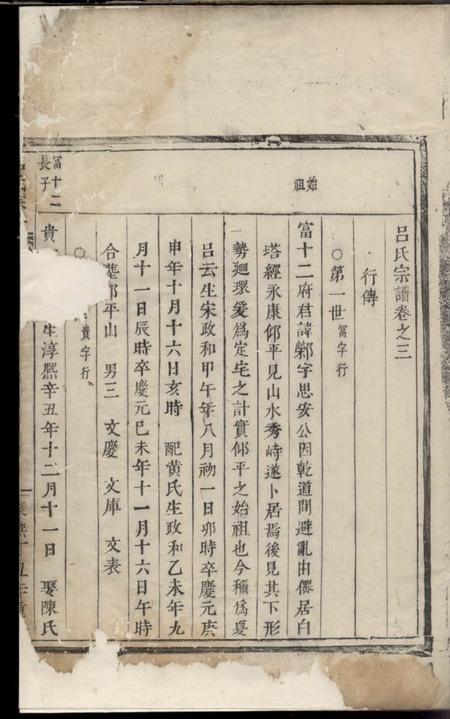 呂氏宗譜卷之三
行傳
○第一世 富字行
始祖
富十二府君諱鄴字思安公因乾道間避亂由僊居白
塔經永康仰平見山水秀峙遂卜居焉後見其下形
勢廻環爰爲定宅之計實仰平之始祖也今稱爲夏
呂云生宋政和甲午年八月初一日卯時卒慶元庚
申年十月十六日亥時 配黄氏生政和乙未年九
月十一日辰時卒慶元已未年十一月十六日午時
合塟 平山 男三 文慶 文庫 文表
○ 貴字行
富十二長子
貴 生淳熙辛丑年十二月十一日 娶陳氏